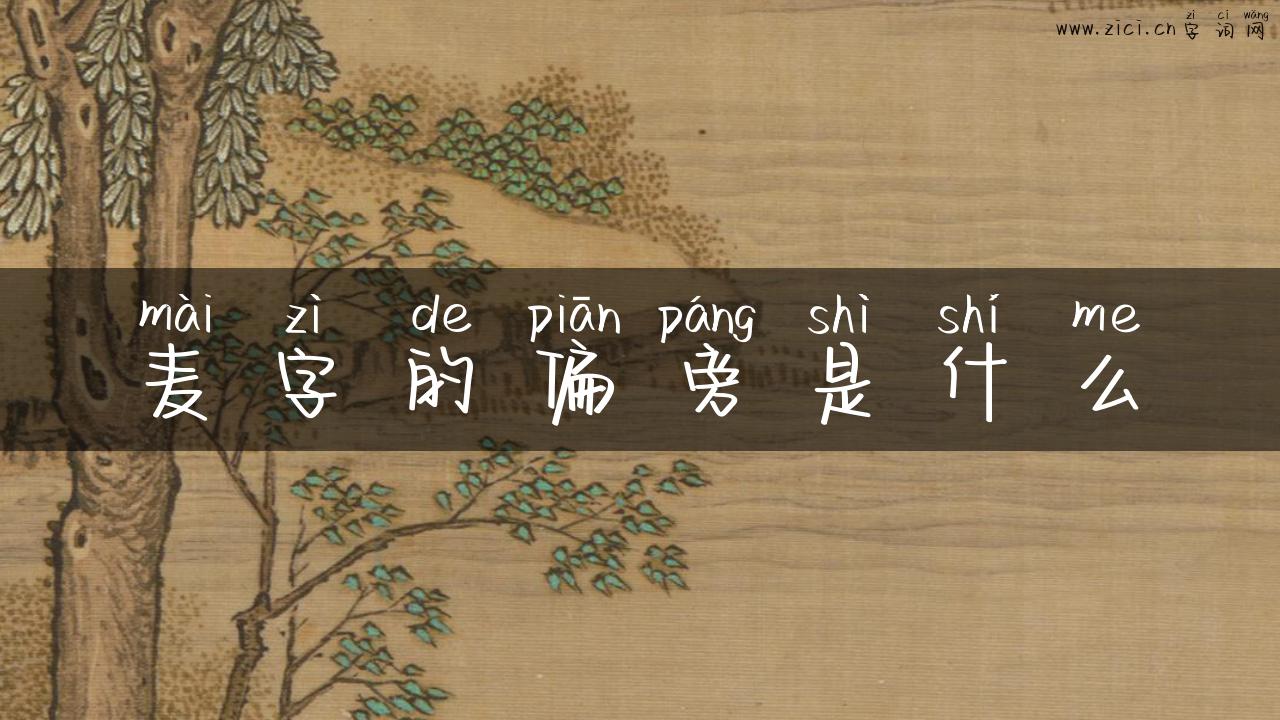 zì cí wǎng
www.zici.cn 字词网
mài zì de piān páng shì shí me
麦字的偏旁是什么